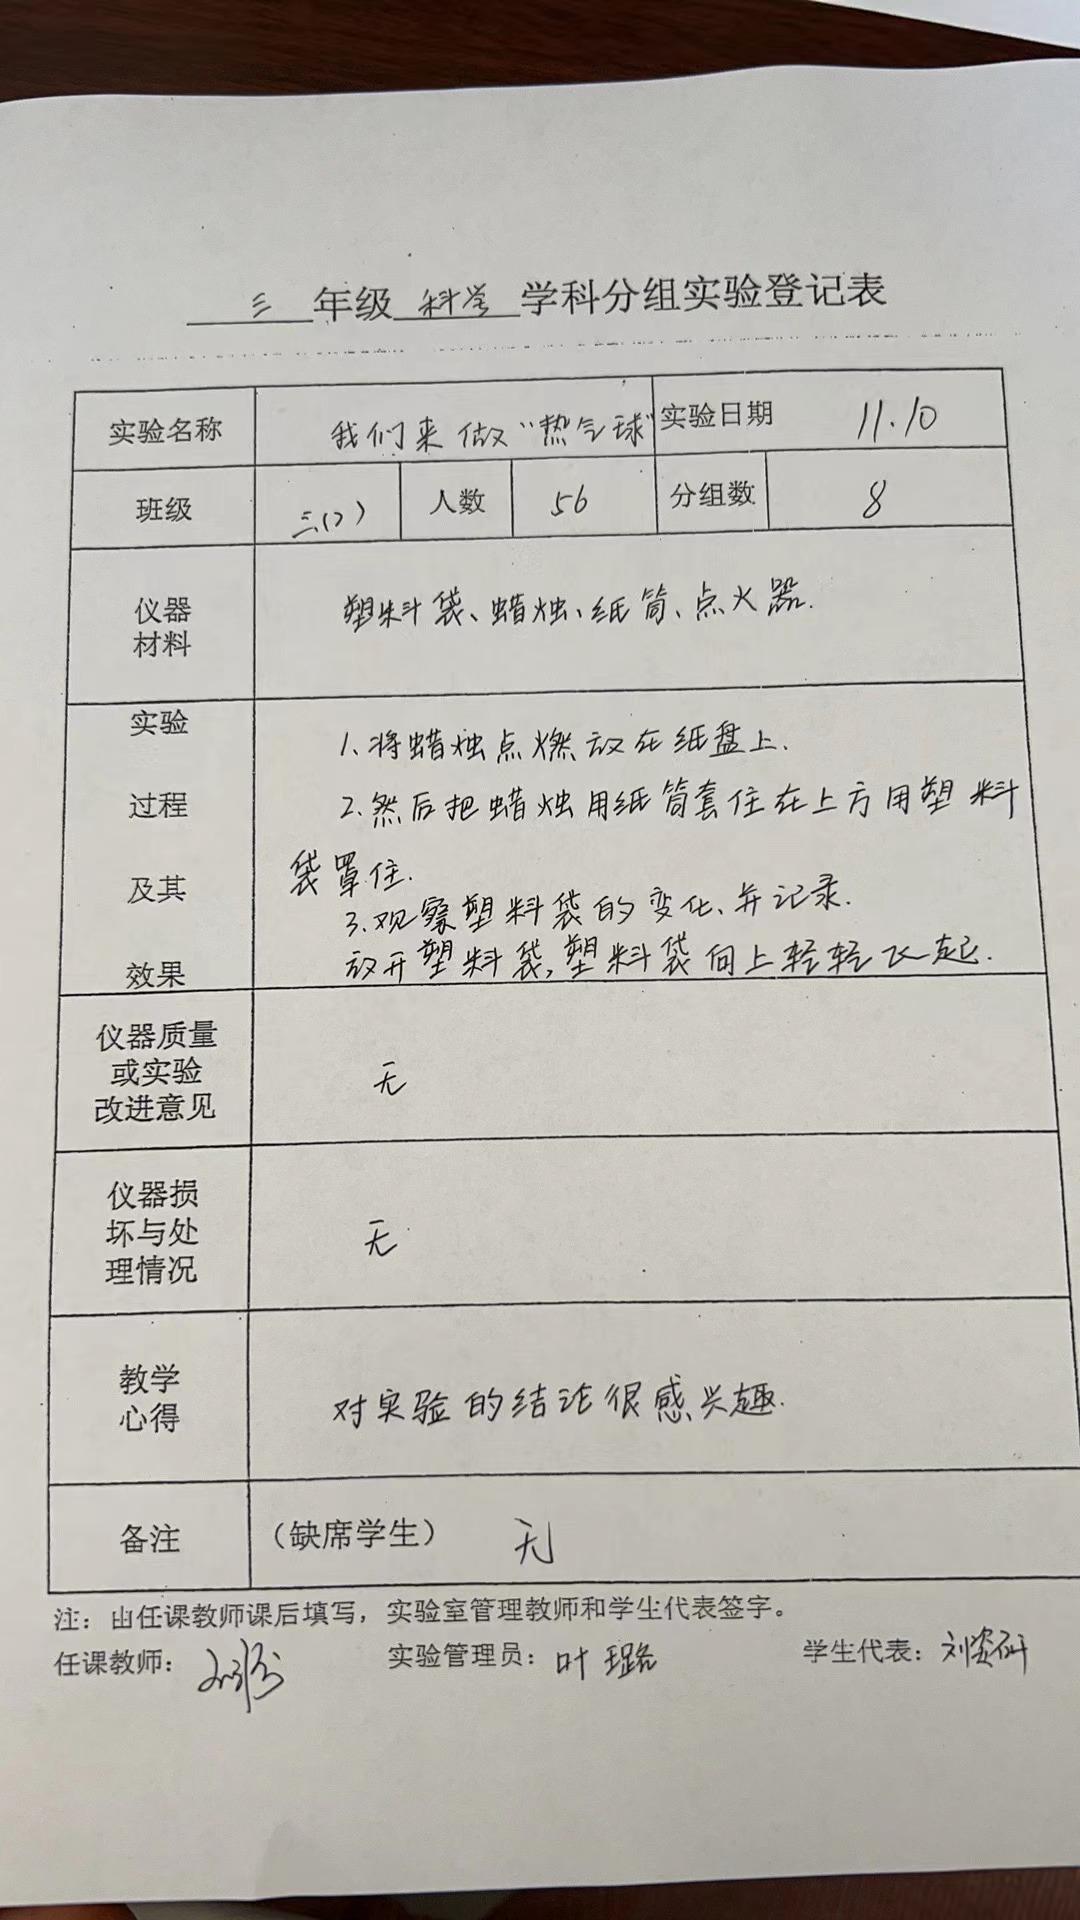 三年级科学学科分组实验登记表
实验名称 我们来做“热气球” 实验日期 11.10
班级 三(2) 人数 56 分组数 8
仪器
材料
塑料袋、蜡烛、纸筒、点火器.
实验
过程
及其
效果
1.将蜡烛点燃放在纸盘上.
2.然后把蜡烛用纸筒套住在上方用塑料
袋罩住.
3.观察塑料袋的变化、并记录.
放开塑料袋,塑料袋向上轻轻飞起.
仪器质量
或实验
改进意见
无
仪器损
坏与处
理情况
无
教学
心得
对实验的结论很感兴趣.
备注 (缺席学生) 无
注：由任课教师课后填写，实验室管理教师和学生代表签字。
任课教师： 实验管理员：叶璐 学生代表：刘资研